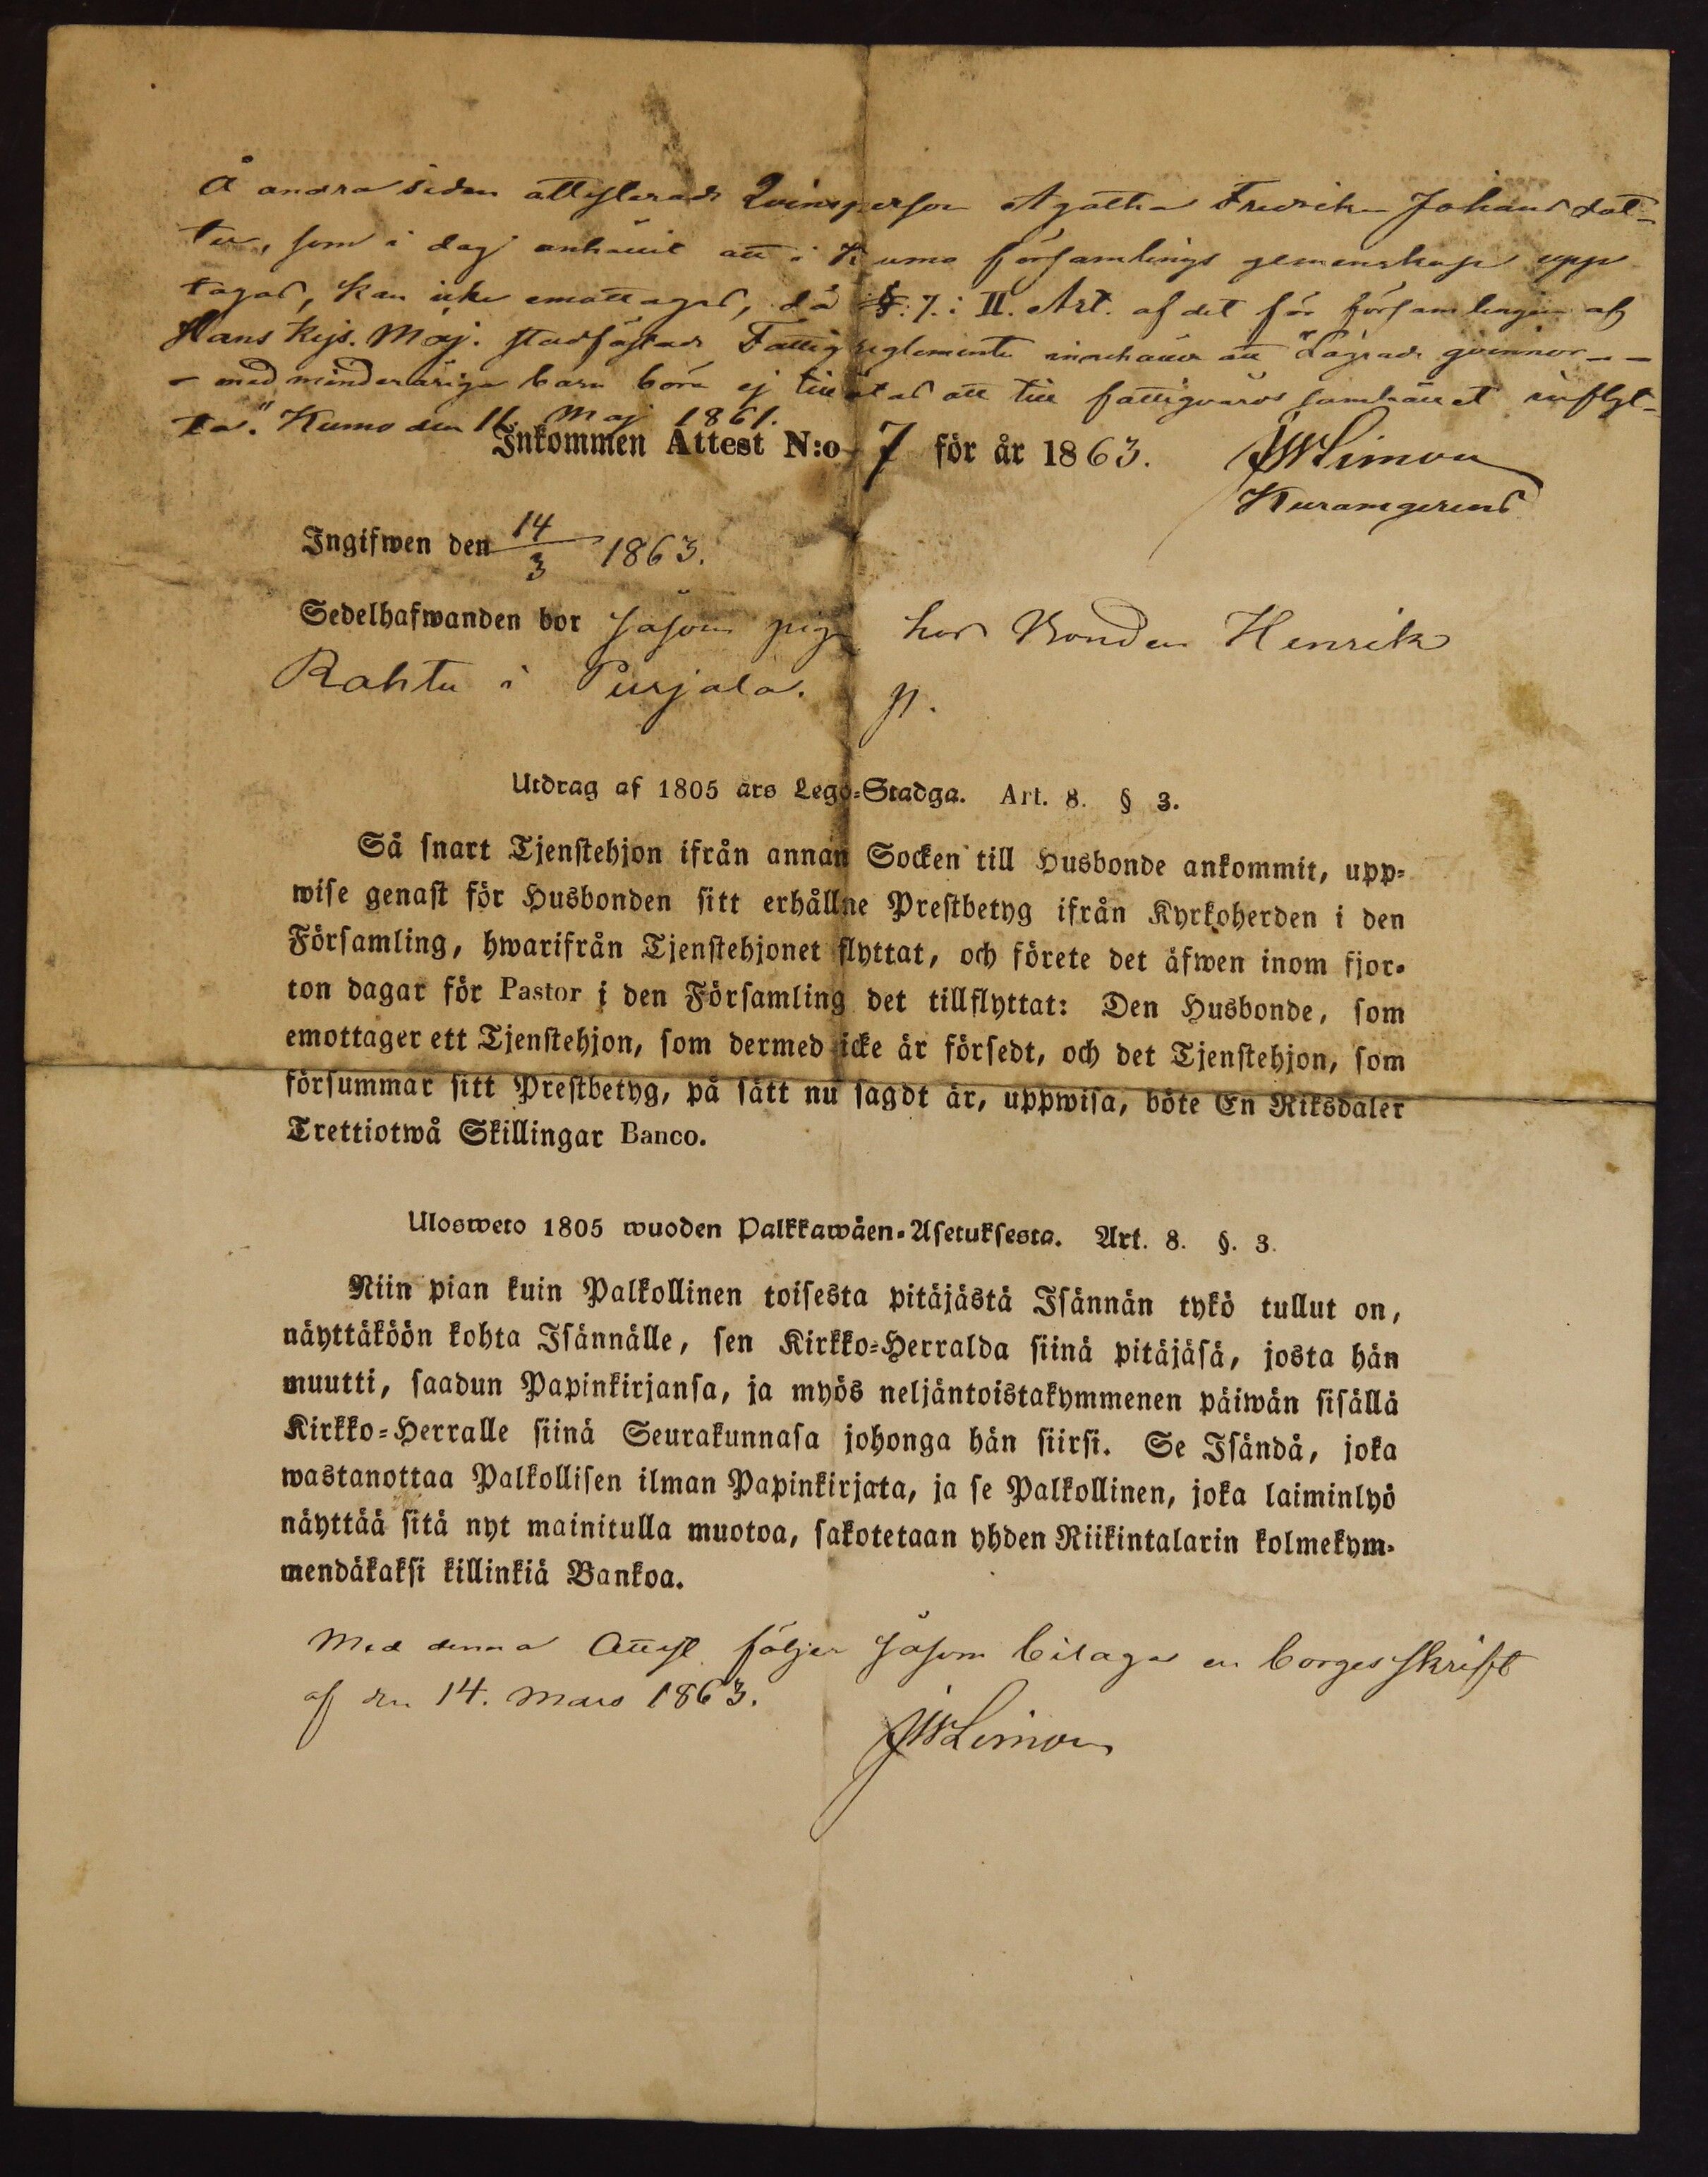 Å andra sidan attesterade Qvinsperson Agatha Fredrika Johansdot-
ter, som i dag anhållit att i Kumo församlings gemenskap upp
tagas, kan icke emottagas, då §. 7. i II. Art. af det för församlingen af
Hans Kejs. Maj. stadfästade Fattigreglemente innehåller att "Lägrade qvinnor - -
- med minderåriga barn böra ej tillåtas att till fattigvårds samhället inflyt-
ta." Kumo den 16. Maj 1861.
Inkommen Attest N:o 7 för år 1863. JWLimon
Kuramgerens
Ingifwen den 14/3 1863.
Sedelhafwanden bor såsom piga hos Bonden Henrik
Rahtu i Purjala. p.
Utdrag af 1805 års Lego-Stadga. Art. 8. § 3.
Så snart Tjenstehjon ifrån annan Socken till Husbonde ankommit, upp-
wise genast för Husbonden sitt erhållne Prestbetyg ifrån Kyrkoherden i den
Församling, hwarifrån Tjenstehjonet flyttat, och förete det äfwen inom fjor-
ton dagar för Pastor i den Församling det tillflyttat: Den Husbonde, som
emottager ett Tjenstehjon, som dermed icke är försedt, och det Tjenstehjon, som
försummar sitt Prestbetyg, på sätt nu sagdt är, uppwisa, böte En Riksdaler
Trettiotwå Skillingar Banco.
Ulosweto 1805 wuoden Palkkawäen-Asetuksesta. Art. 8. §. 3.
Niin pian kuin Palkollinen toisesta pitäjästä Isännän tykö tullut on,
näyttäköön kohta Isännälle, sen Kirkko-Herralda siinä pitäjäsä, josta hän
muutti, saadun Papinkirjansa, ja myös neljäntoistakymmenen päiwän sisällä
Kirkko-Herralle siinä Seurakunnasa johonga hän siirsi. Se Isändä, joka
wastanottaa Palkollisen ilman Papinkirjata, ja se Palkollinen, joka laiminlyö
näyttää sitä nyt mainitulla muotoa, sakotetaan yhden Riikintalarin kolmekym-
mendäkaksi killinkiä Bankoa.
Med denna Attest följer såsom bilaga en borgesskrift
af den 14. Mars 1863.
JWLimon